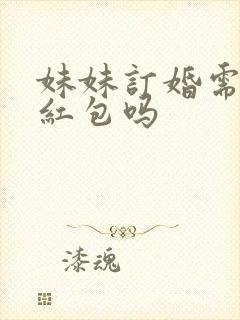 妹妹訂婚需
紅包吗
漆魂